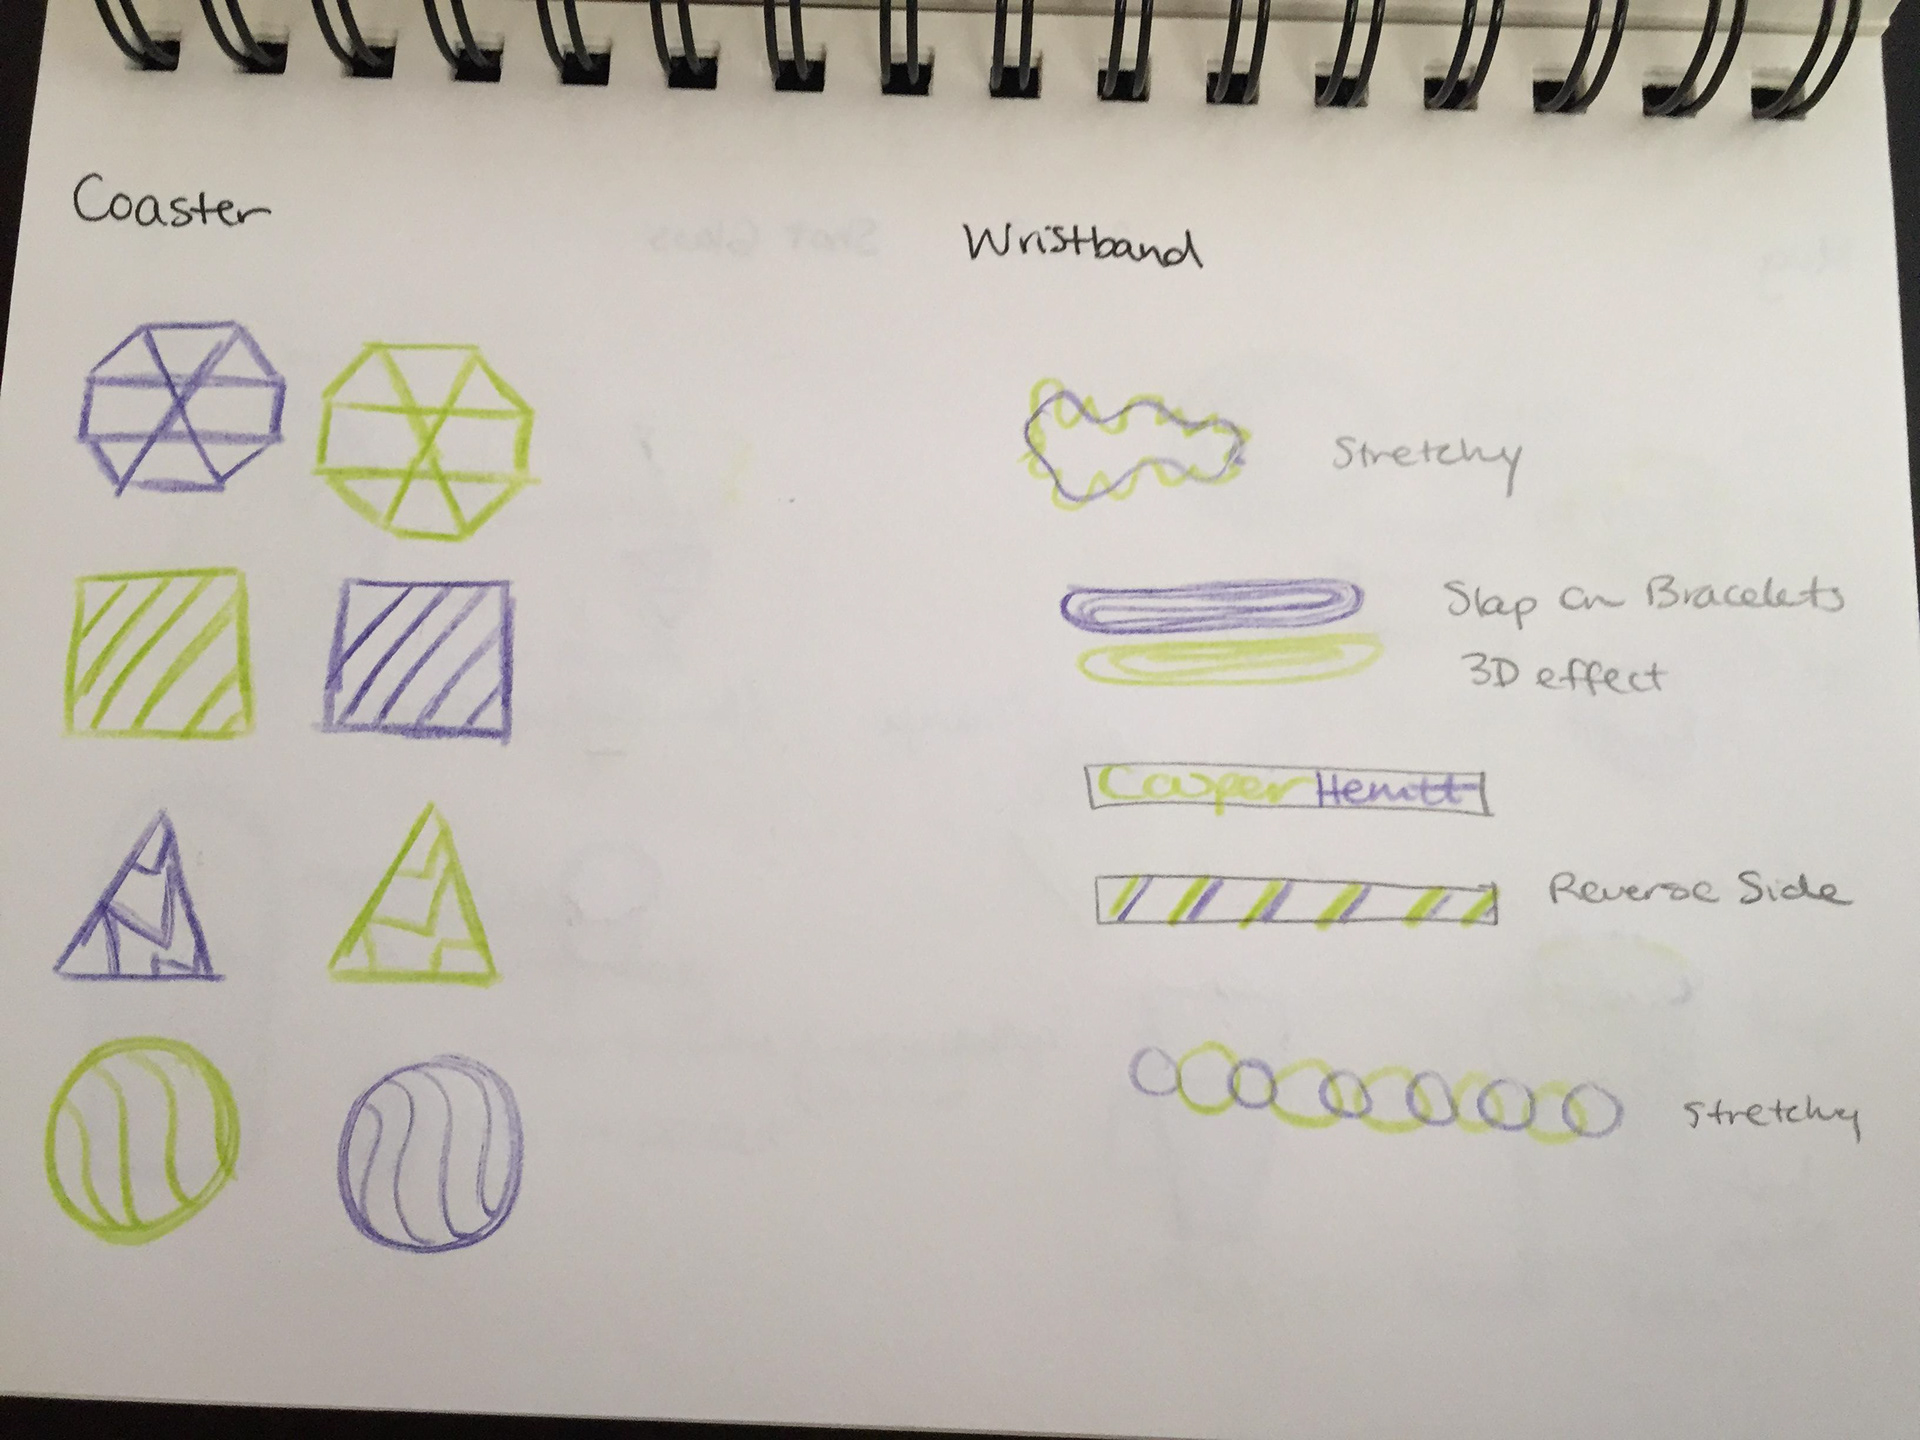 Coaster
Wristband
Stretchy
Slap on Bracelets
3D effect
Casper Hewitt
Reverse Side
stretchy